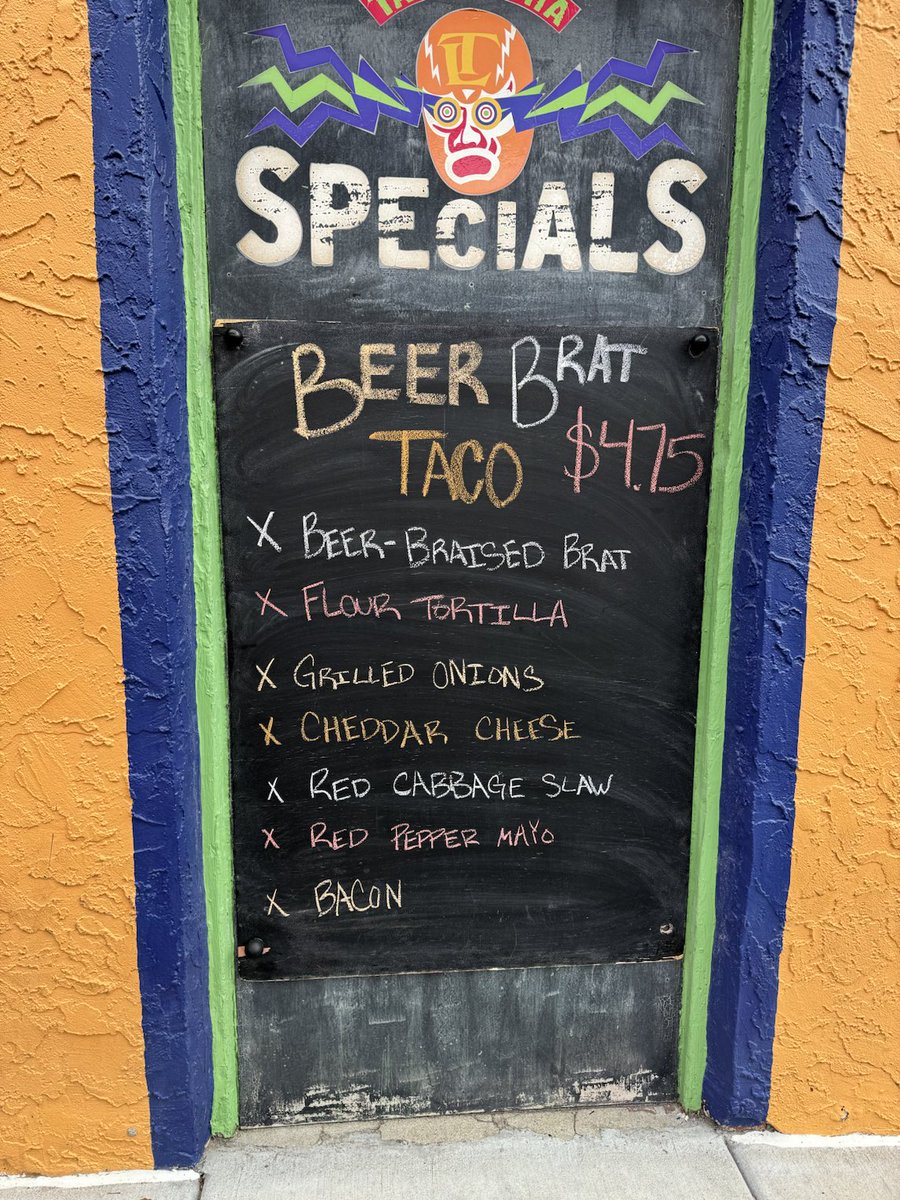 LT
SPECIALS
BEER BRAT
TACO $4.75
X BEER-BRAISED BRAT
X FLOUR TORTILLA
X GRILLED ONIONS
X CHEDDAR CHEESE
X RED CABBAGE SLAW
X RED PEPPER MAYO
X BACON